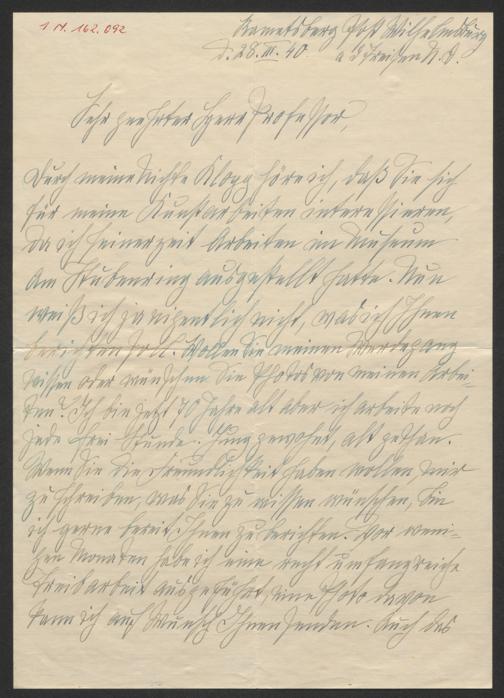 I.N. 162.092
Kametsberg Post Wilhelmsburg
d. 28. III. 40. a. d. Treisen N. D.
Sehr geehrter Herr Professor,
Durch meine Nichte Klogg höre ich, daß Sie sich
für meine Kunstarbeiten interessieren,
da ich seinerzeit Arbeiten im Museum
am Stubenring ausgestellt hatte. Nun
weiß ich ja eigentlich nicht, was ich Ihnen
berichten soll. Wollen Sie meinen Werdegang
wissen oder wünschen Sie Photos von meinen Arbei-
ten? Ich bin jetzt 70 Jahre alt aber ich arbeite noch
jede frei Stunde. Jung gewohnt, alt gethan.
Wenn Sie die Freundlichkeit haben wollen, mir
zu schreiben, was Sie zu wissen wünschen, bin
ich gerne bereit Ihnen zu berichten. Vor weni-
gen Monaten habe ich eine recht umfangreiche
Treibarbeit ausgeführt, eine Photo davon
kann ich auf Wunsch Ihnen senden. Auch das